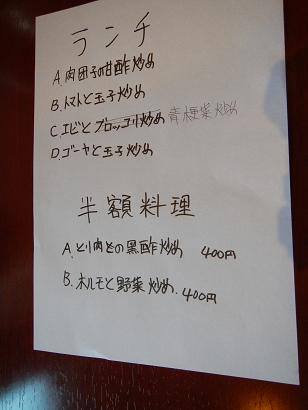 ランチ
A.肉団子の甘酢炒め
B.トマトと玉子炒め
C.エビとブロッコリ炒め 青梗菜炒め
D.ゴーヤと玉子炒め
半額料理
A.とり肉との黒酢炒め 400円
B.ホルモと野菜炒め.400円